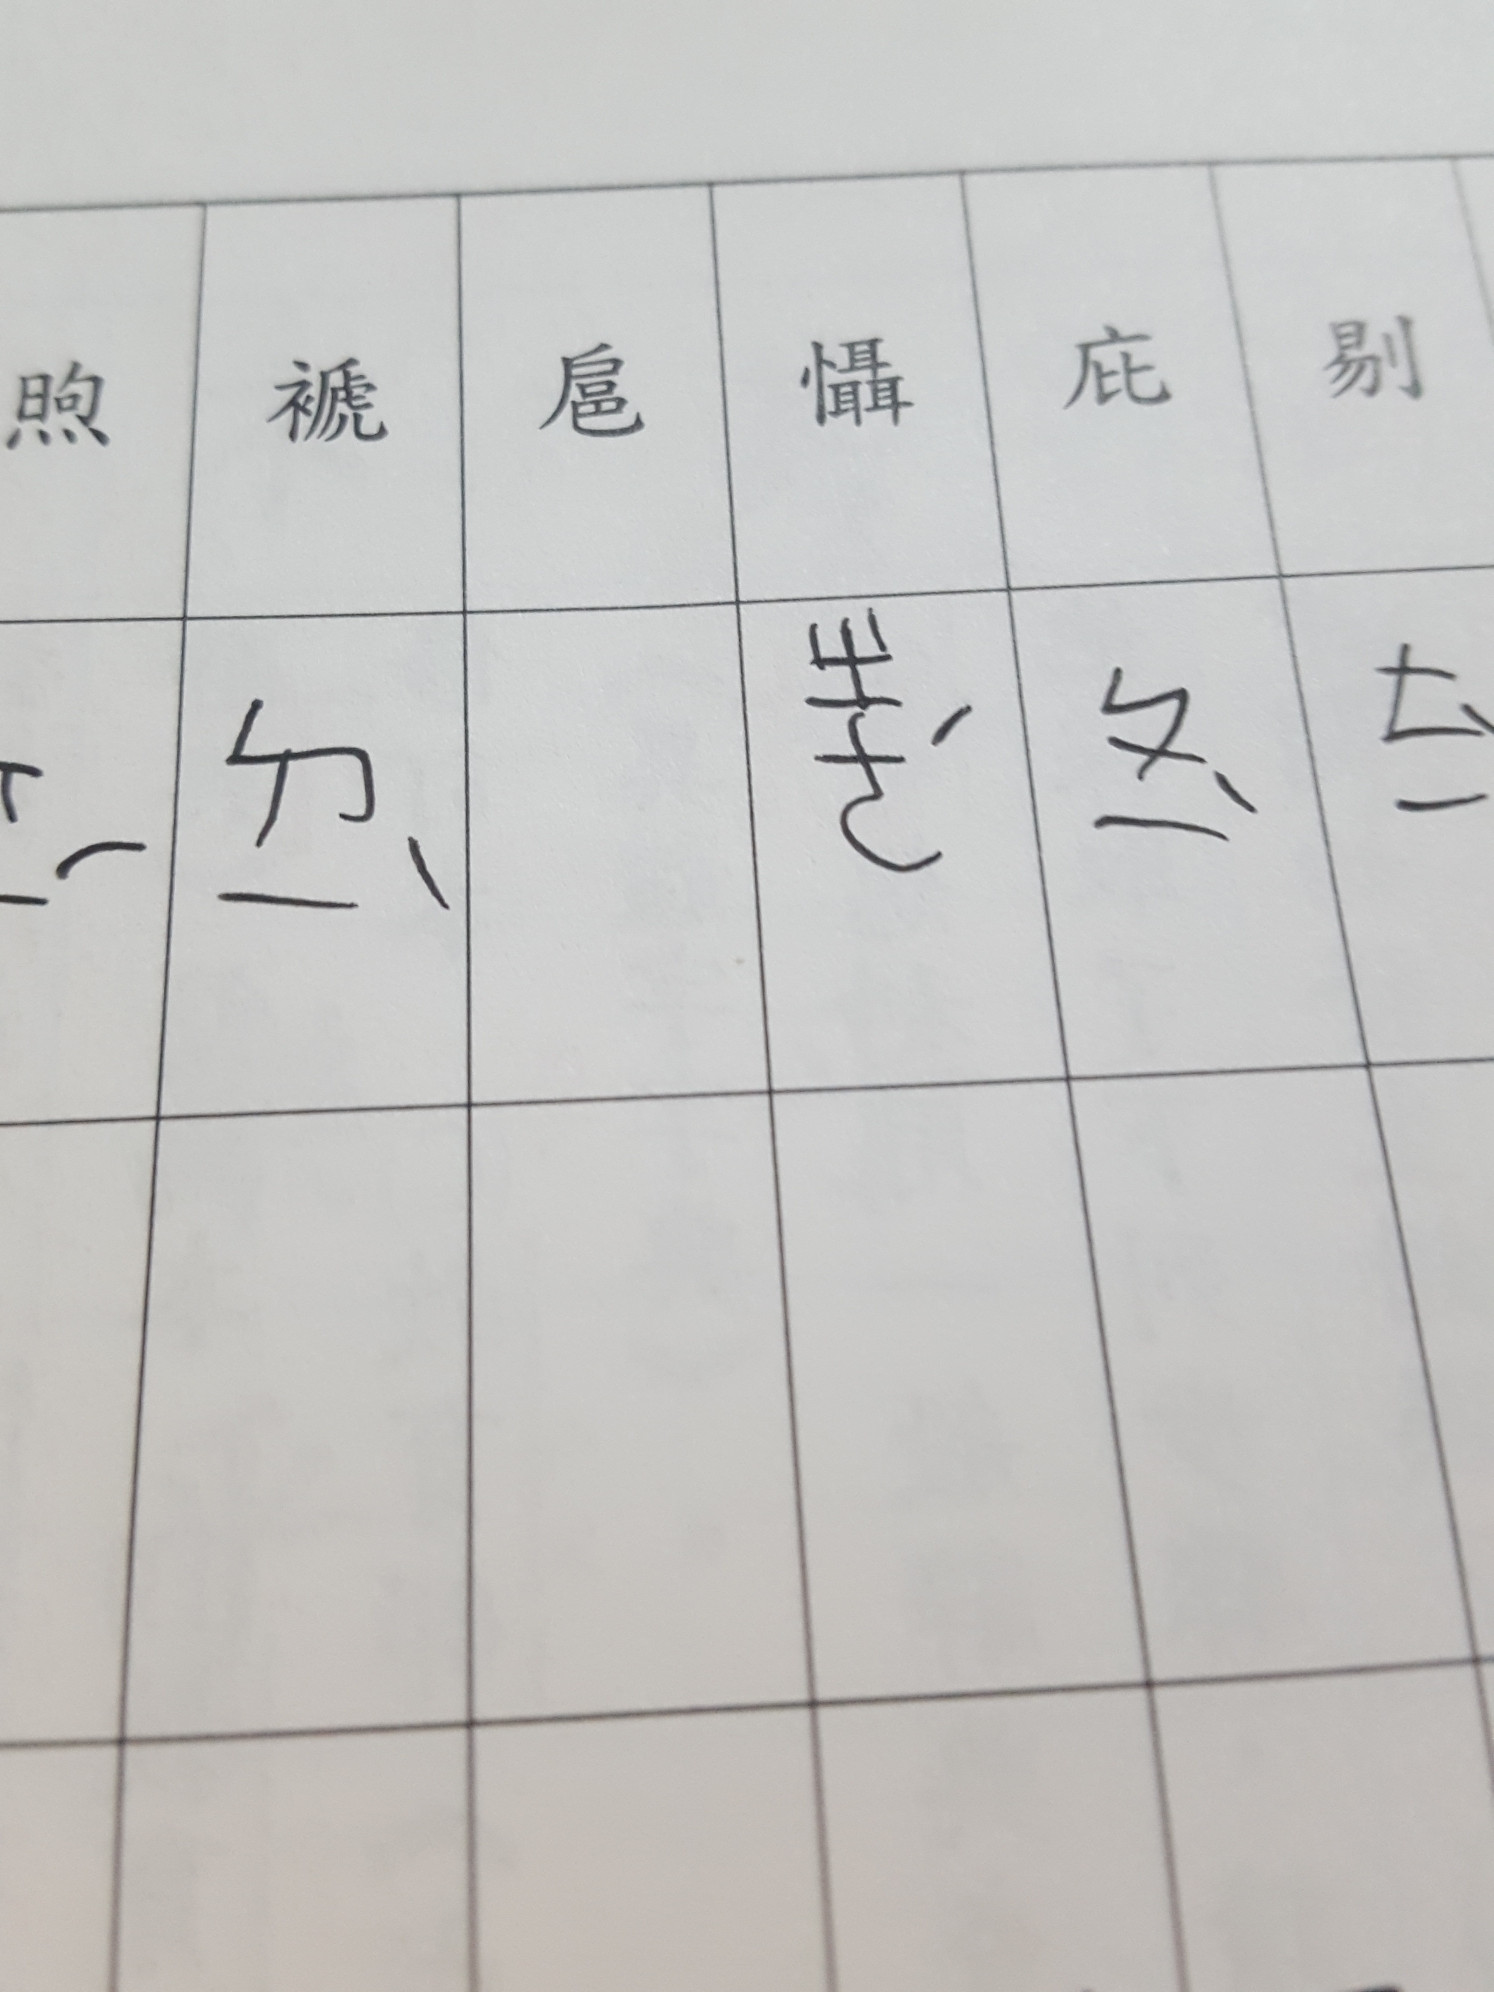 煦 褫 扈 懾 庇 剔
ㄒㄧˉ ㄉㄧˋ ㄓㄜˊ ㄆㄧˋ ㄊㄧˋ